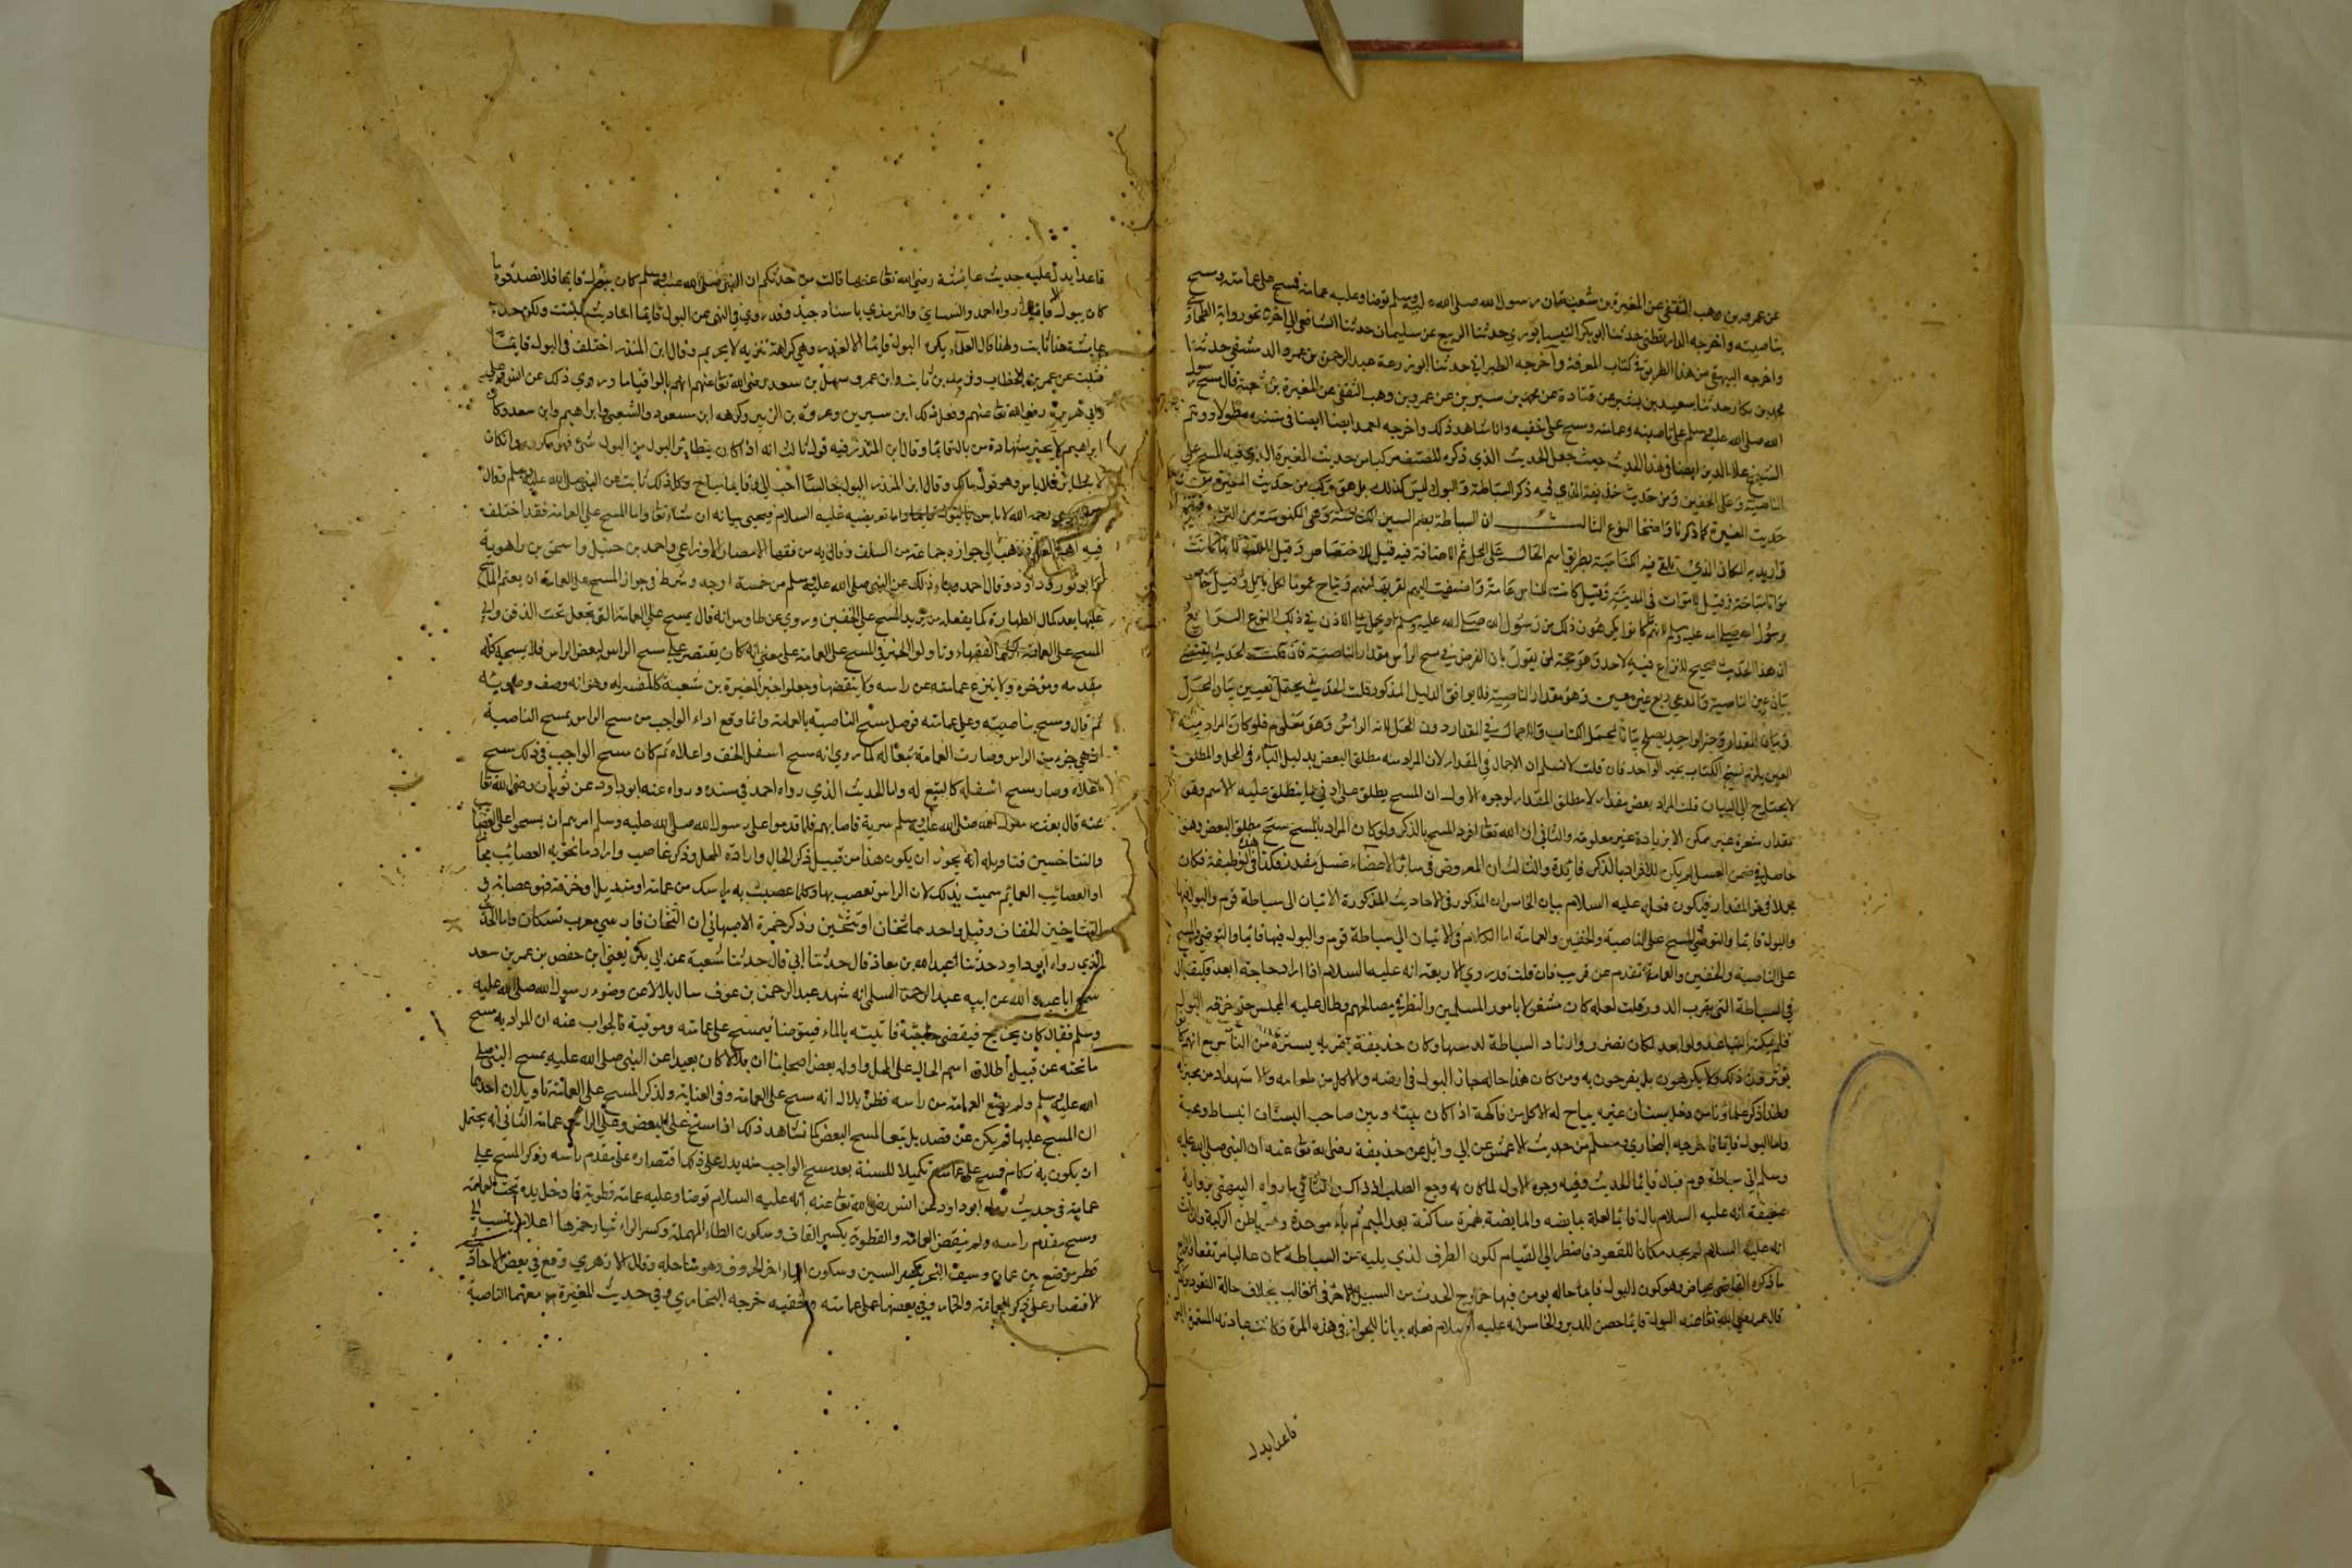 عن عمرو بن وهب الثقفي عن المغيرة بن شعبة ان رسول الله صلى الله عليه وسلم توضا وعليه عمامة فمسح على عمامته ومسح
بناصيته واخرجه الدارقطني حدثنا ابو بكر النيسابوري حدثنا الربيع عن سليمان حدثنا الشافعي الى اخره نحو رواية الطحاوي
واخرجه البيهقي من هذا الطريق في كتاب المعرفة واخرجه الطبراني حدثنا ابو زرعة عبد الرحمن بن عمرو الدمشقي حدثنا
محمد بن بكار حدثنا سعيد بن بشير عن قتادة عن محمد بن سيرين عن عمرو بن وهب الثقفي عن المغيرة بن شعبة قال مسح رسول
الله صلى الله عليه وسلم على ناصيته وعمامته ومسح على خفيه وانا شاهد ذلك واخرجه احمد ايضا في مسنده مطولا
الشيخ علاء الدين ايضا في هذا الحديث حيث جعل الحديث الذي ذكره المصنف مركبا من حديث المغيرة الذي فيه المسح على
الناصية وعلى الخفين ومن حديث حذيفة الذي فيه ذكر السباطة والبول ليس كذلك بل هو مركب من حديث المغيرة
حديث المغيرة كما ذكرنا واضحا النوع الثالث ان السباطة بضم السين الكناسة وهي الكنوسة من التراب
واريد به المكان الذي تلقى فيه الكناسة بطريق اسم الحال على المحل ثم الاضافة فيه قيل للاختصاص وقيل للملك لانها كانت
مواتا مباحة وقيل للموات في المدينة وقيل كانت للناس عامة واضيفت اليهم لقربها منهم ويباح عموما لكل بايل وقيل خاص
برسول الله صلى الله عليه وسلم لانهم كانوا لا يكرهون ذلك من رسول الله صلى الله عليه وسلم او يحمل على الاذن في ذلك النوع الرابع
ان هذا الحديث صحيح لا نزاع فيه لاحد وهو حجة لمن يقول بان الفرض في مسح الراس مقدار الناصية فان قلت الحديث يقتضي
بيان عين الناصية والمدعي ربع غير معين وهو مقدار الناصية فلا يوافق الدليل المذكور قلت الحديث يحتمل تعيين بيان المحل
وبيان المقدار وخبر الواحد يصلح بيانا لمجمل الكتاب والاجمال في المقدار دون المحل لانه الراس وهو معلوم فلو كان المراد منه
العين يلزم نسخ الكتاب بخبر الواحد فان قلت لا نسلم ان الاجمال في المقدار لان المراد منه مطلق البعض بدليل الباء في المحل والمطلق
لا يحتاج الى البيان قلت المراد بعض مقدار لا مطلق المقدار لوجوه الاول ان المسح يطلق على ادنى ما ينطلق عليه الاسم وهو
مقدار شعرة غير ممكن الا بزيادة غير معلومة والثاني ان الله تعالى افرد المسح بالذكر ولو كان المراد بالمسح مسح مطلق البعض وهو
حاصل في ضمن الغسل لم يكن للافراد بالذكر فايدة والثالث ان المفروض في سائر الاعضاء غسل مقدر فكذا في هذه الوظيفة فكان
مجملا في حق المقدار فيكون فعله عليه السلام بيان الخامس ان المذكور في الاحاديث المذكورة الاتيان الى سباطة قوم والبول فيها
والبول قايما والتوضي والمسح على الناصية والخفين والعمامة اما الكلام في الاتيان الى سباطة قوم والبول فيها قايما والتوضي والمسح
على الناصية والخفين والعمامة تقدم عن قريب فان قلت قد روي الاربعة انه عليه السلام اذا اراد حاجة ابعد فكيف بال
في السباطة التي بقرب الدور قلت لعله كان مشغولا بامور المسلمين والنظر في مصالحهم وطال عليه المجلس حتى حزقه البول
فلم يمكنه التباعد ولو ابعد لكان تضرر وارتاد السباطة لدمسها وكان حذيفة بقربه يستره من الناس مع انهم كانوا
يوثرون ذلك ولا يكرهون بل يفرحون به ومن كان هذا حاله جاز البول في ارضه والاكل من طعامه والاستمداد من محبرته
ولهذا ذكر علماونا من دخل بستان غيره يباح له الاكل من فاكهة اذا كان بينه وبين صاحب البستان انبساط ومحبة
واما البول قايما فاخرجه البخاري ومسلم من حديث الاعمش عن ابي وائل عن حذيفة رضي الله تعالى عنه ان النبي صلى الله عليه
وسلم اتى سباطة قوم فبال قايما الحديث وفيه وجوه الاول لما كان به وجع الصلب اذ ذاك والثاني ما رواه البيهقي برواية
ضعيفة انه عليه السلام بال قايما لعلة بمابضه والمابضة بهمزة ساكنة بعد الميم ثم باء موحدة وهو باطن الركبة والثالث
انه عليه السلام لم يجد مكانا للقعود فاضطر الى القيام لكون الطرف الذي يليه من السباطة كان عاليا مرتفعا والرابع
ما ذكره القاضي عياض وهو كون البول قايما حالة يومن فيها خروج الحدث من السبيل الاخر في الغالب بخلاف حالة القعود ولذلك
قال عمر رضي الله تعالى عنه البول قايما احصن للدبر والخامس انه عليه السلام فعله بيانا للجواز في هذه المرة وكانت عادته المستمرة البول
قاعدا يدل
قاعدا يدل عليه حديث عائشة رضي الله تعالى عنها قالت من حدثكم ان النبي صلى الله عليه وسلم كان يبول قايما فلا تصدقوه ما
كان يبول الا قاعدا رواه احمد والنسائي والترمذي باسناد جيد وقد روي في النهي عن البول قايما احاديث لا تثبت ولكن حديث
عايشة هذا ثابت ولهذا قال العلماء يكره البول قايما الا لعذر وهي كراهة تنزيه لا تحريم وقال ابن المنذر اختلف في البول قايما
فثبت عن عمر بن الخطاب وزيد بن ثابت وابن عمر وسهل بن سعد رضي الله تعالى عنهم انهم بالوا قياما وروي ذلك عن انس وعلي
وابي هريرة رضي الله تعالى عنهم وفعل ذلك ابن سيرين وعروة بن الزبير وكرهه ابن مسعود والشعبي وابراهيم وابن سعد وكان
ابراهيم لا يجيز شهادة من بال قايما وقال ابن المنذر فيه قول ثالث انه اذا كان يتطاير من البول شيء فهو مكروه وان كان
لا يتطاير فلا باس وهو قول مالك وقال ابن المنذر البول جالسا احب الي وقايما مباح وكل ذلك ثابت عن النبي صلى الله عليه وسلم وقال
رحمه الله لا باس بالبول قايما واما توضيه عليه السلام فيجيء بيانه ان شاء تعالى واما المسح على العمامة فقد اختلف
فيه اهل العلم فذهب الى جوازه جماعة من السلف وقال به من فقهاء الامصار الاوزاعي واحمد بن حنبل واسحق بن راهوية
وابو ثور وداود وقال احمد جاء ذلك عن النبي صلى الله عليه وسلم من خمسة اوجه وشرط في جواز المسح على العمامة ان يعتم الماسح
عليها بعد كمال الطهارة كما يفعله من يريد المسح على الخفين وروي عن طاوس انه قال يمسح على العمامة التي تجعل تحت الذقن وابى
المسح على العمامة اكثر الفقهاء وتاولوا الخبر في المسح على العمامة على معنى انه كان يقتصر على مسح الراس لبعض الراس فلا يمسحه كله
مقدمه وموخره ولا ينزع عمامته عن راسه ولا ينقضها وجعلوا خبر المغيرة بن شعبة كالمفسر له وهو انه وصف وضوئه
ثم قال ومسح بناصيته وعلى عمامته فوصل مسح الناصية بالعمامة وانما وقع اداء الواجب من مسح الراس بمسح الناصية
اذ هي جزء من الراس وصارت العمامة تبعا له كما روي انه مسح اسفل الخف واعلاه ثم كان مسح الواجب في ذلك مسح
اعلاه وصار مسح اسفله كالتبع له واما الحديث الذي رواه احمد في مسنده ورواه عنه ابو داود عن ثوبان رضي الله تعالى
عنه قال بعث رسول الله صلى الله عليه وسلم سرية فاصابهم فلما قدموا على رسول الله صلى الله عليه وسلم امرهم ان يمسحوا على العصائب
والتساخين فتاويله انه يجوز ان يكون هذا من قبيل ذكر الحال وارادة المحل وذكر عصائب واراد ما تحويه العصائب مجازا
او العصائب العمائم سميت بذلك لان الراس تعصب بها وكلما عصبت به راسك من عمامة او منديل او خرقة فهو عصابة
التساخين الخفاف وقيل واحدها تسخان او تسخين وذكر حمزة الاصبهاني ان التسخان فارسي معرب تشكان واما الحديث
الذي رواه ابو داود حدثنا عبيد الله بن معاذ قال حدثنا ابي قال حدثنا شعبة عن ابي بكر يعني ابن حفص بن عمر بن سعد
سمع ابا عبد الله عن ابيه عبد الرحمن السلمي انه شهد عبد الرحمن بن عوف سال بلالا عن وضوء رسول الله صلى الله عليه
وسلم فقال كان يخرج فيقضي حاجته فاتيته بالماء فيتوضا فيمسح على عمامته وموقيه فالجواب عنه ان المراد به مسح
ما تحته عن قبيل اطلاق اسم الحال على المحل واوله بعض اصحابنا ان بلالا كان بعيدا عن النبي صلى الله عليه يمسح النبي صلى
الله عليه وسلم ولم يضع العمامة من راسه فظن بلال انه مسح على العمامة وفي الغناية ولذكر المسح على العمامة تاويلان احدهما
ان المسح عليها لم يكن عن قصد بل تبعا لمسح البعض كما نشاهد ذلك اذا مسح على البعض وعلى الراس عمامة الثاني انه يحتمل
ان يكون به زكام فمسح على عمامته تكميلا للسنة بعد مسح الواجب منه يدل على ذلك اقتصاره على مقدم راسه وذكر المسح على
عمامته في حديث رواه ابو داود عن انس رضي الله تعالى عنه انه عليه السلام توضا وعليه عمامة قطرية فادخل يده تحت العمامة
ومسح مقدم راسه ولم ينقض العمامة والقطرية بكسر القاف وسكون الطاء المهملة وكسر الراء ثياب حمر لها اعلام ينسب الى
قطر موضع بين عمان وسيف البحر بكسر السين وسكون الياء اخر الحروف وهو ساحله وقال الازهري وقع في بعض الاحاديث
الاقتصار على ذكر العمامة والخمار وفي بعضها على عمامته وخفيه خرجه البخاري وفي حديث المغيرة معهما الناصية